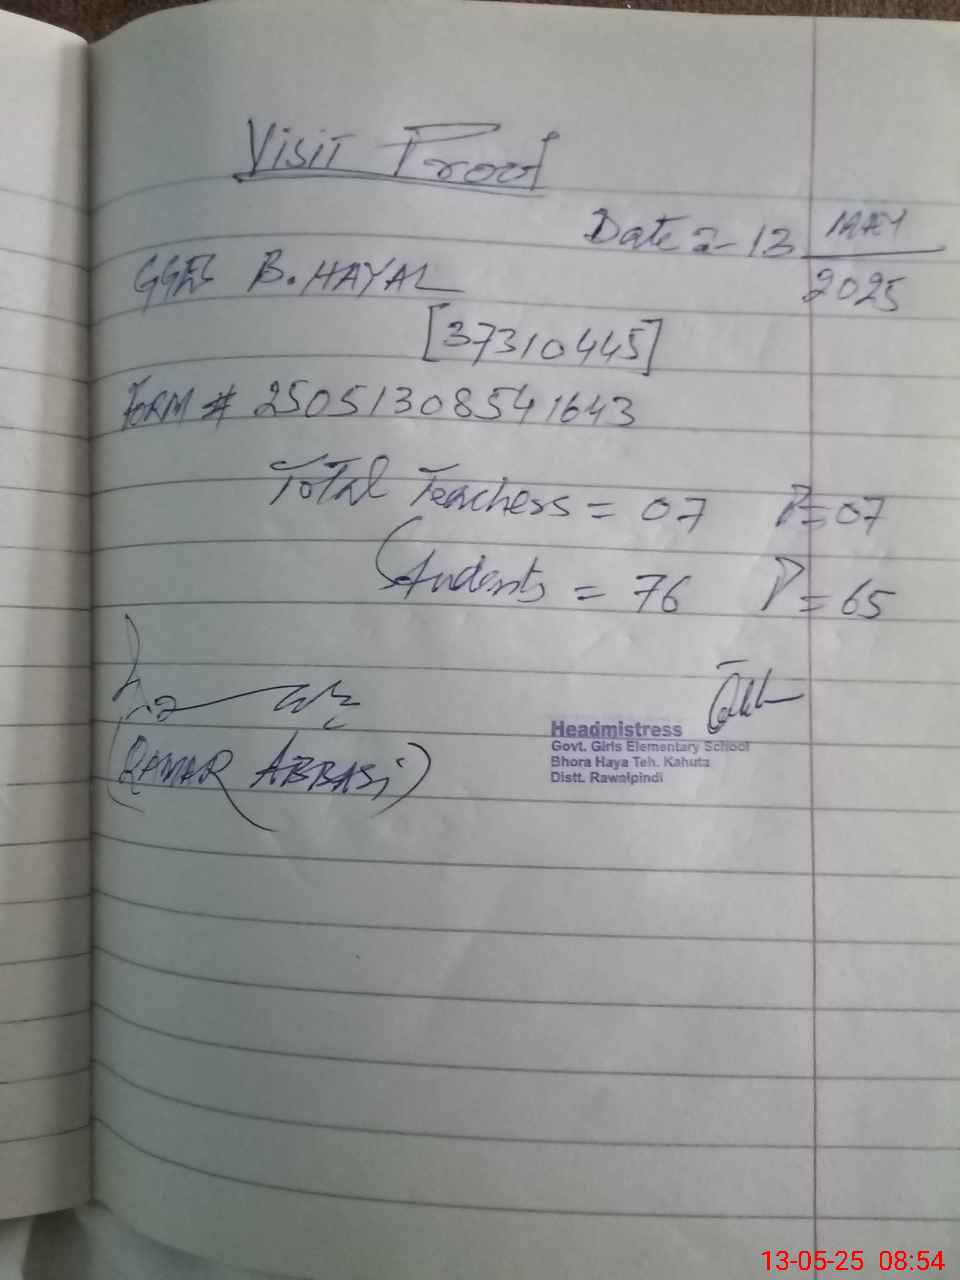 Visit Proof
Date :- 13 MAY
2025
GGES B. HAYAL
[37310445]
FORM # 25051308541643
Total Teachers = 07 P = 07
Students = 76 P = 65
(QAMAR ABBASi)
Headmistress
Govt. Girls Elementary School
Bhora Haya Teh. Kahuta
Distt. Rawalpindi
13-05-25 08:54